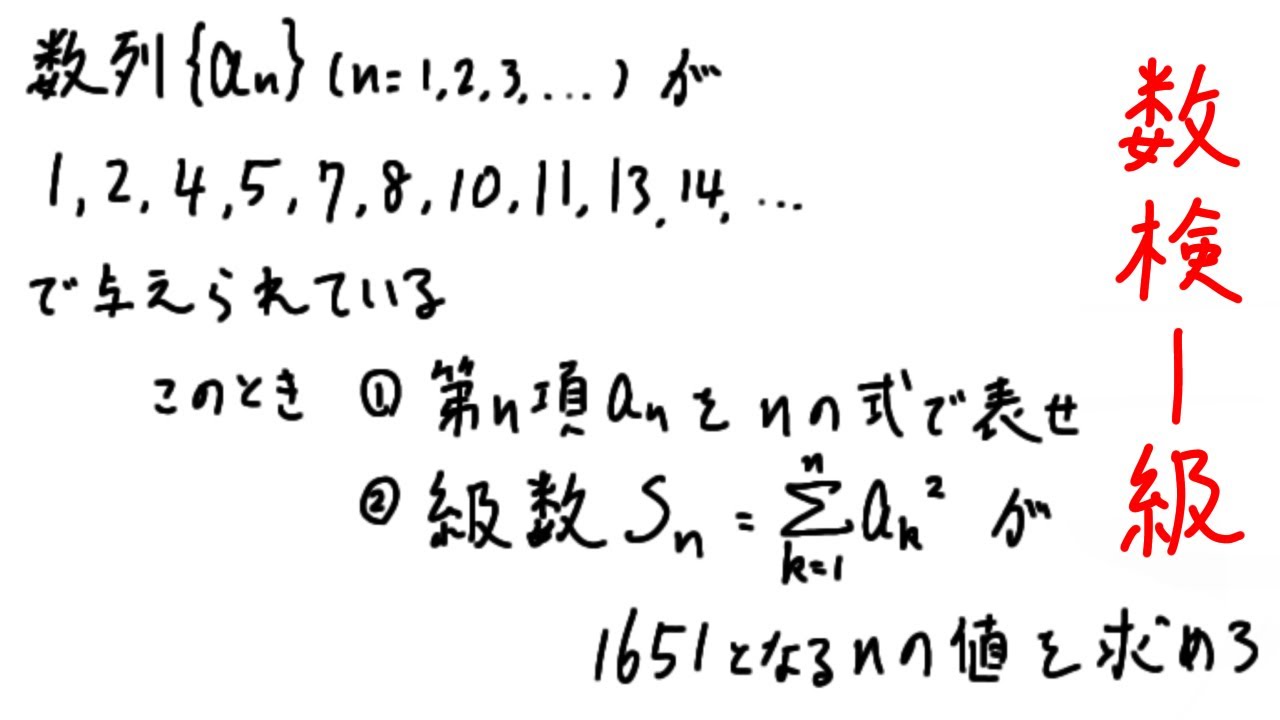 数列{aₙ} (n=1,2,3,…) が
1,2,4,5,7,8,10,11,13,14,…
で与えられている
このとき ① 第n項aₙをnの式で表せ
② 級数 Sₙ = Σ[k=1→n] aₖ² が
1651となるnの値を求めろ
数検1級